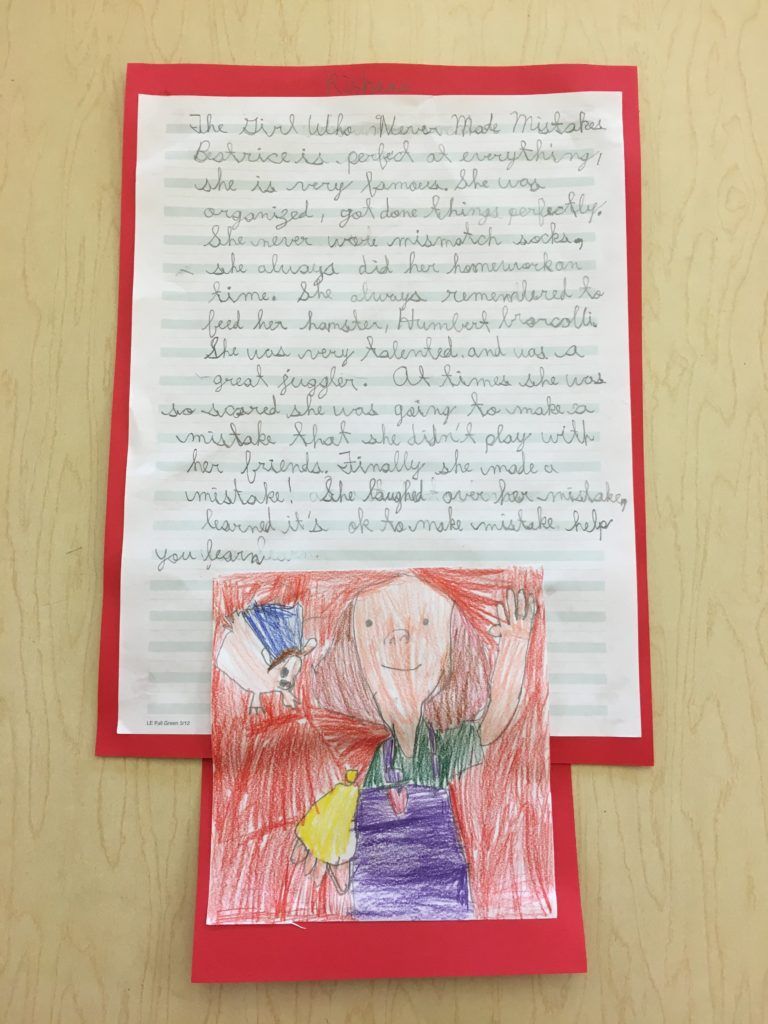 The Girl Who Never Made Mistakes
Beatrice is perfect at everything,
she is very famous. She was
organized, got done things perfectly.
She never wore mismatch socks,
she always did her homework on
time. She always remembered to
feed her hamster, Humbert brorcolli.
She was very talented. and was a
great juggler. At times she was
so scared she was going to make a
mistake that she didn't play with
her friends. Finally she made a
mistake! She laughed over her mistake,
learned it's ok to make mistake help
you learn
LE Pali Green 5/12